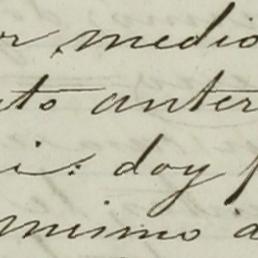 or medio
to anter
i: doy f
mismo a